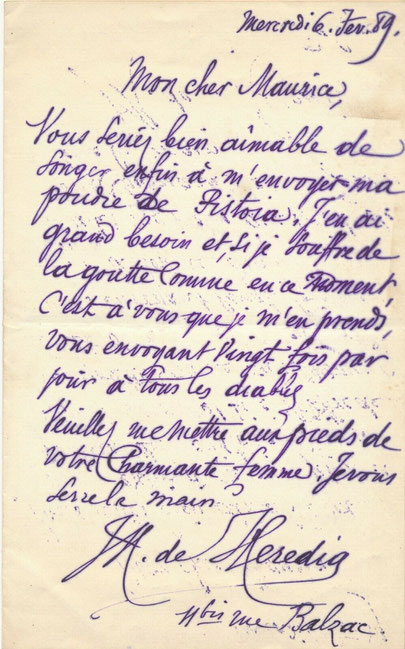 Mercredi 6. Fev. 89.
Mon cher Maurice,
Vous seriez bien aimable de
songer enfin à m'envoyer ma
poudre de Pistoia. J'en ai
grand besoin et, si je souffre de
la goutte comme en ce moment,
c'est à vous que je m'en prends,
vous envoyant vingt fois par
jour à tous les diables
Veuillez me mettre aux pieds de
votre charmante femme. Je vous
serre la main
JM. de Heredia
11bis rue Balzac